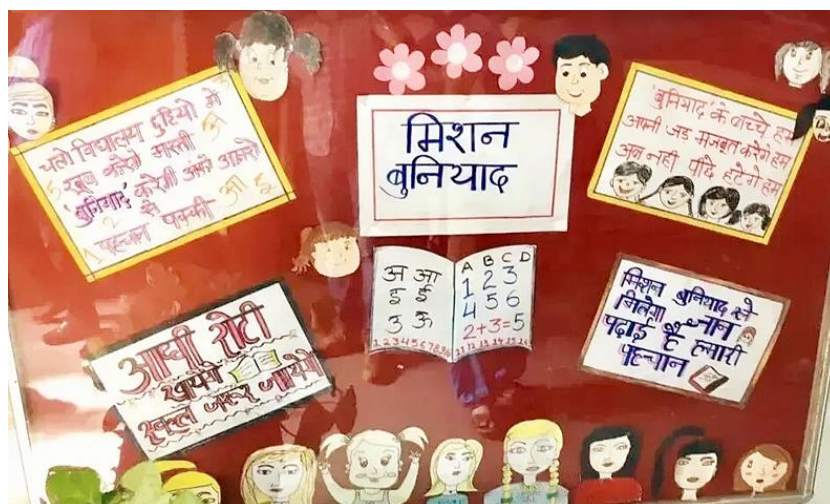 मिशन
बुनियाद
चलो विद्यालय छुट्टियो मे
खूब करेगे मस्ती
'बुनियाद' करेगी अपने अक्षरो
से
पहचान पक्की
अ
आ इ
5
1 2
'बुनियाद' के बच्चे हम
अपनी जड मजबूत करेगे हम
अब नही पीछे हटेगे हम
अ आ
इ ई
उ ऊ
1 2 3 4 5 6 7 8 9
A B C D
1 2 3
4 5 6
2+3=5
11 12 13 14 15 16
आधी रोटी
खायेगे
स्कूल जरूर जायेगे
मिशन बुनियाद से
मिलेगा ज्ञान
पढाई है हमारी
पहचान